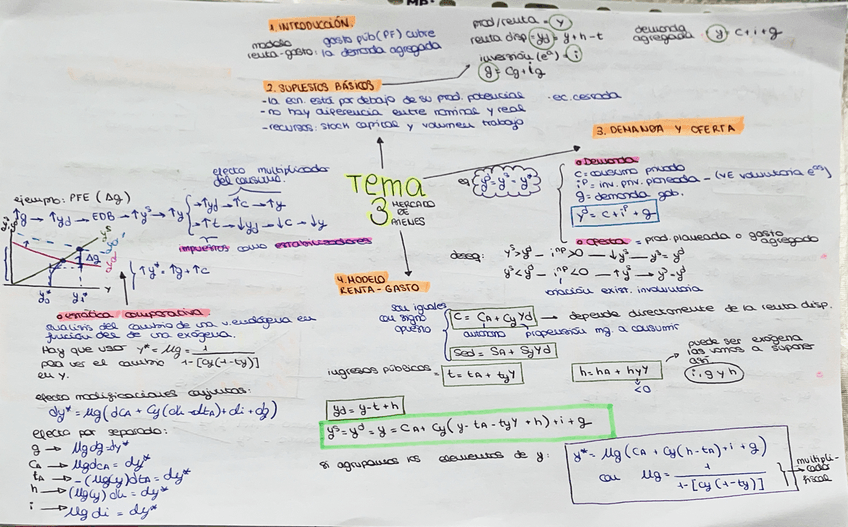 1. INTRODUCCIÓN.
modelo renta-gasto: gasto púb (PF) cubre la demanda agregada
prod/renta = y
renta disp = yd = y+h-t
inversión (eª) = i
g = Cg + ig
demanda agregada = y = c+i+g
2. SUPUESTOS BÁSICOS
- la ecn. está por debajo de su prod. potencial · ec. cerrada
- no hay diferencia entre nominal y real
- recursos: stock capital y volumen trabajo
Tema 3 MERCADO DE BIENES
3. DEMANDA Y OFERTA
eq yˢ = yᵈ = y*
Demanda
c = consumo privado
iᵖ = inv. priv. planeada - (VE voluntaria eᵒˢ)
g = demanda gob.
yᵈ = c + iᵖ + g
Oferta = prod. planeada o gasto agregado
deseq: yˢ>yᵈ - iⁿᵖ>0 → ↓yˢ → yˢ=yᵈ
yˢ<yᵈ - iⁿᵖ<0 → ↑yˢ → yˢ=yᵈ
variación exist. involuntaria
ejemplo: PFE (Δg)
↑g → ↑yd → EDB → ↑yˢ → ↑y
efecto multiplicador del consumo.
→ ↑yd → ↑c → ↑y
→ ↑t → ↓yd → ↓c → ↓y
impuestos como estabilizadores
yˢ
Δg
y
y₀*
y₁*
↑y* = ↑g + ↑c
estática comparativa
análisis del cambio de una v. endógena en función del de una exógena.
Hay que usar y* = Mg = 1 / 1-[Cy(1-ty)]
para ver el cambio en y.
efecto modificaciones conjuntas:
dy* = Mg(dCA + Cy(dh - dtA) + di + dg)
efecto por separado:
g → Mg dg = dy*
CA → Mg dCA = dy*
tA → -(Mg Cy) dtA = dy*
h → (Mg Cy) dh = dy*
i → Mg di = dy*
4. MODELO RENTA-GASTO
son iguales con signo opuesto
C = CA + Cy Yd → depende directamente de la renta disp.
autónomo propensión mg. a consumir
Sed = SA + SyYd
ingresos públicos = t = tA + tyY
h = hA + hyY
<0
puede ser exógena las vamos a suponer así
i, g y h
yd = y-t+h
yˢ=yᵈ = y = CA + Cy(y - tA - tyY + h) + i + g
si agrupamos los elementos de y:
y* = Mg(CA + Cy(h - tA) + i + g)
con Mg = 1 / 1-[Cy(1-ty)]
multiplicador fiscal